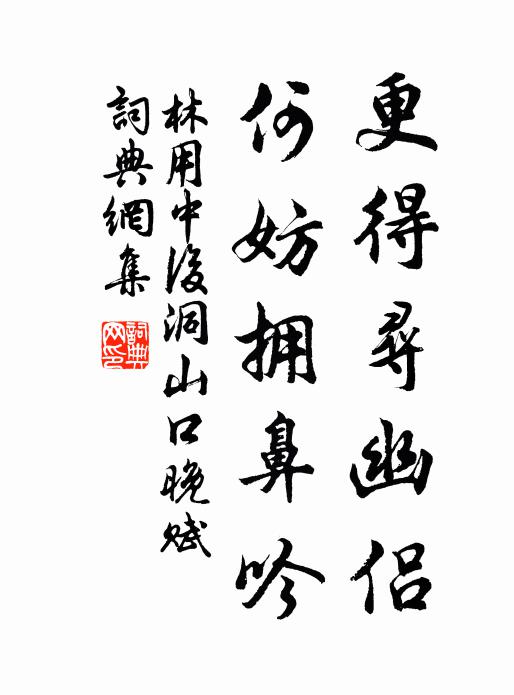 更得尋幽侶
何妨拥鼻吟
林用中後洞山口晚赋
詞典網集
詞典網印